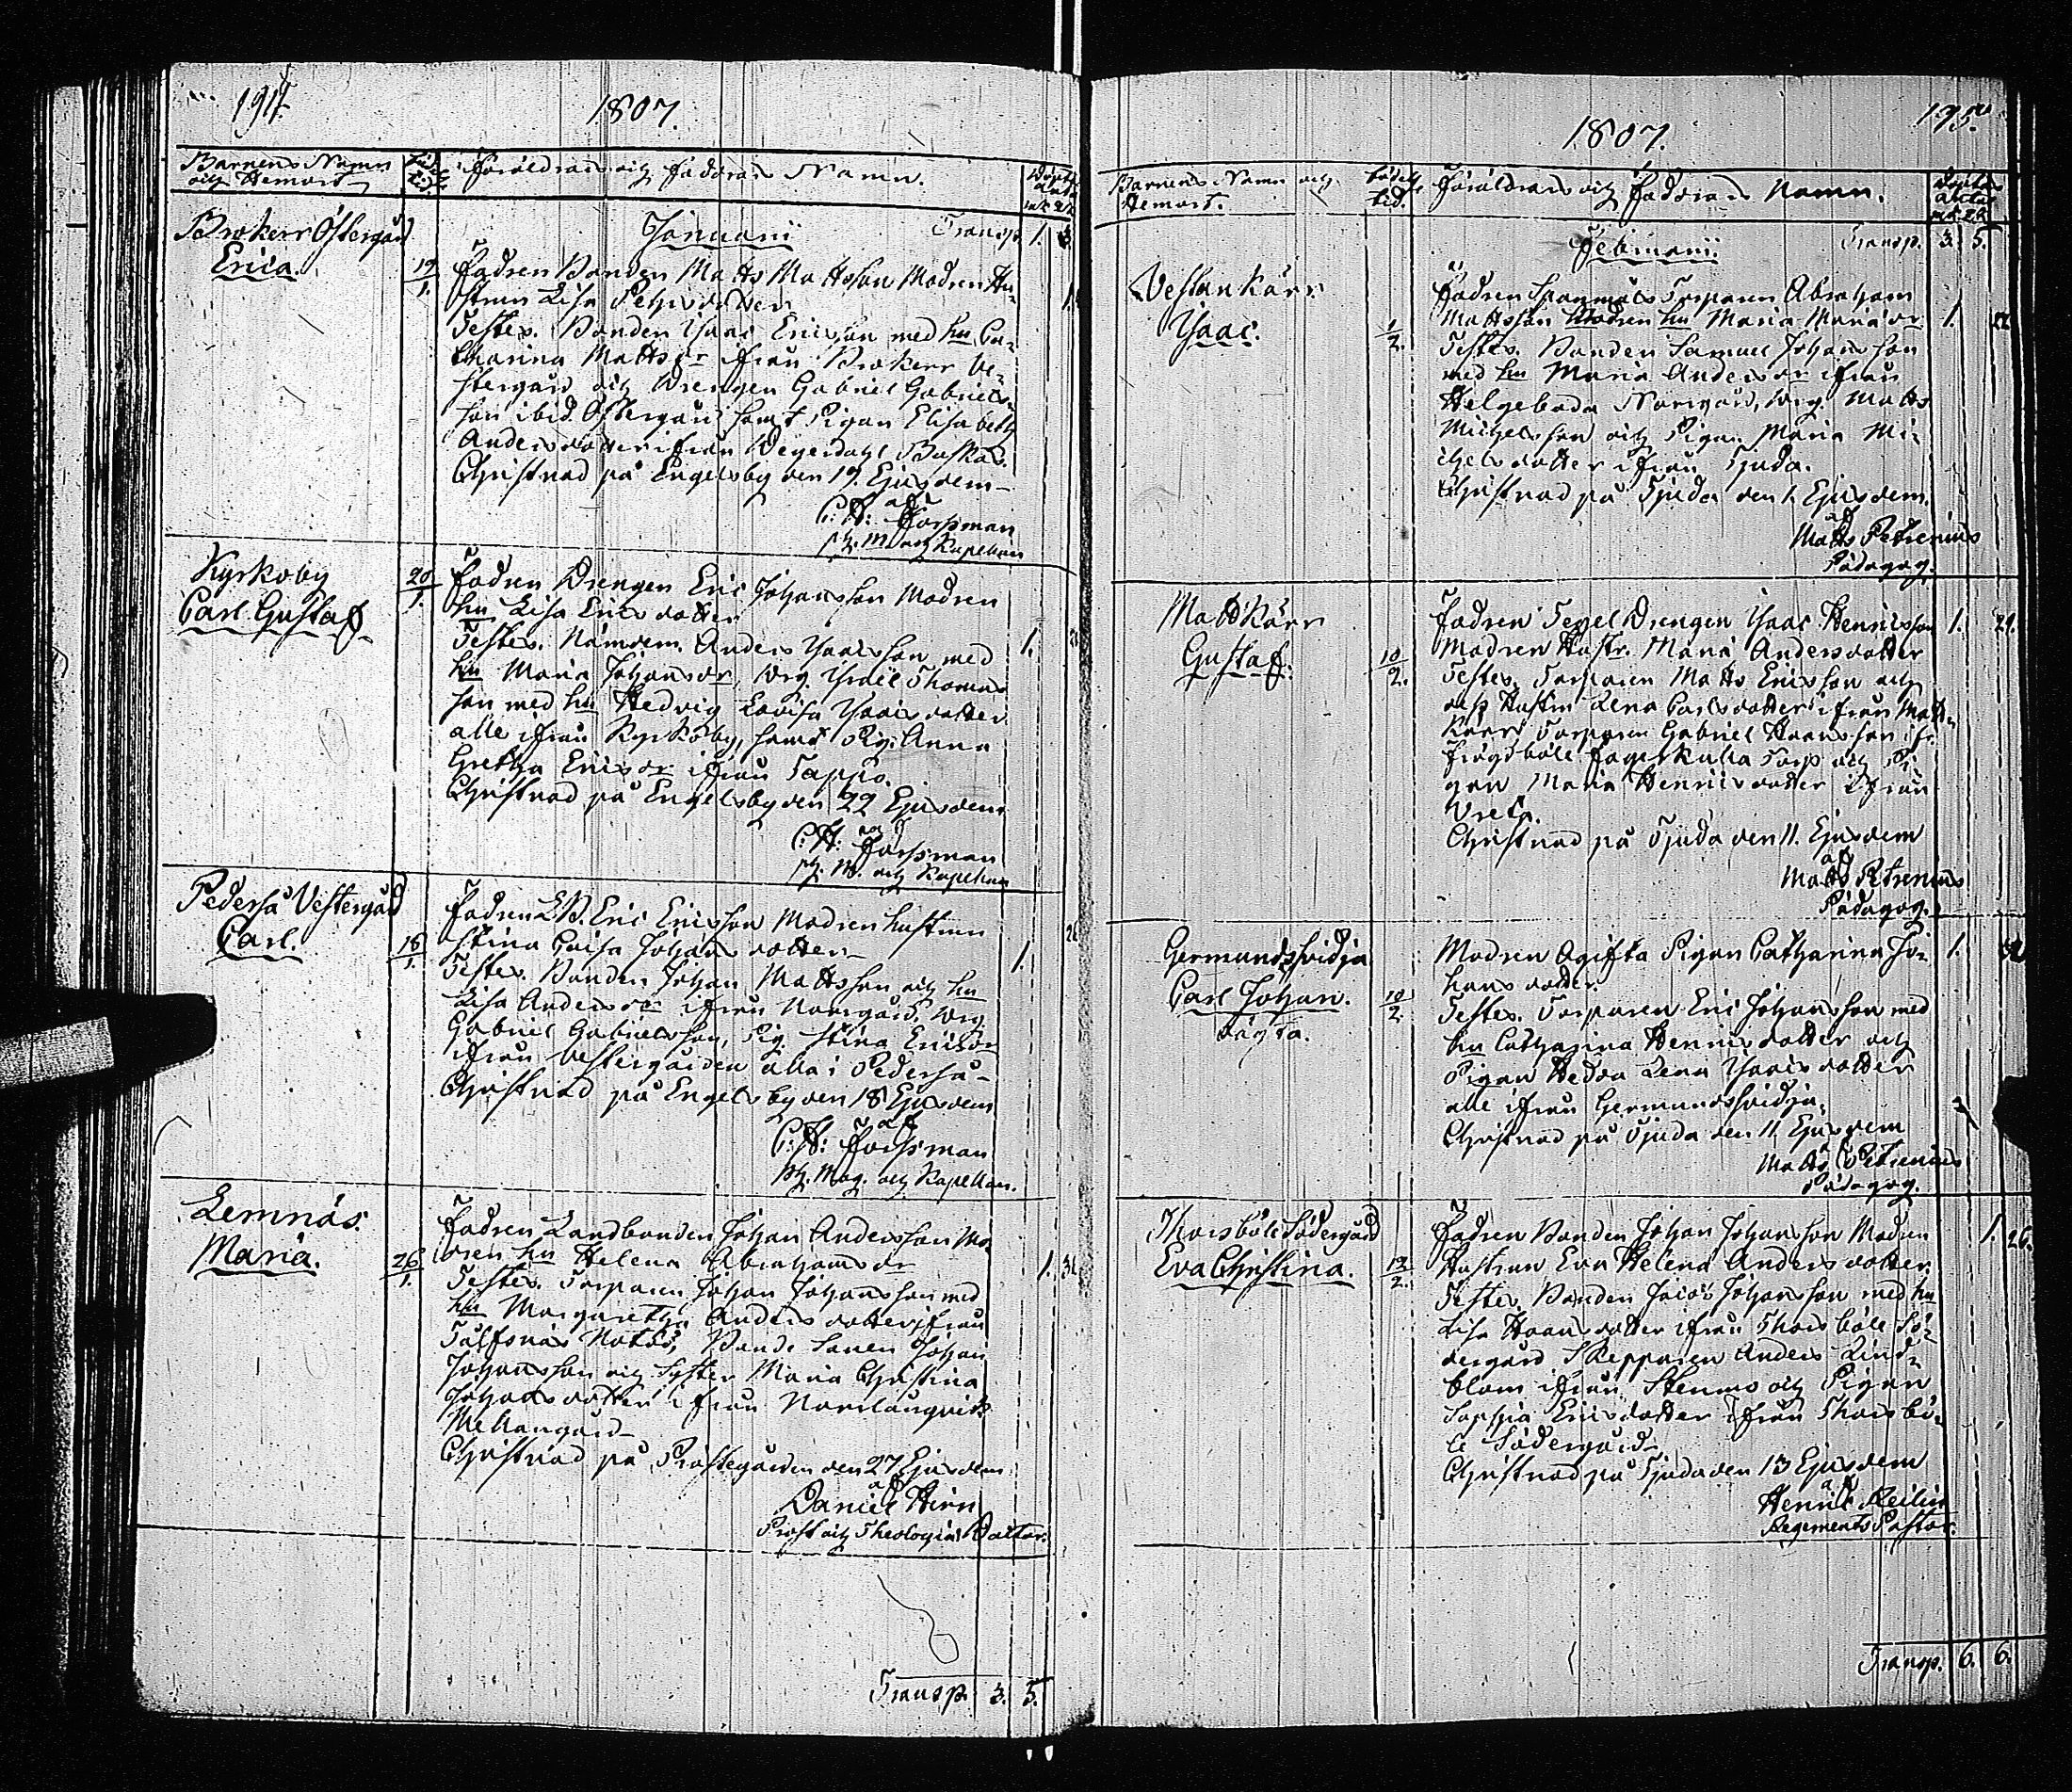 194.
1807.
Barnens Namn
och Hemort
Födelse
Tid
Föräldrars och Faddrars Namn.
Brokerr Östergård
Januarii
Transp. 1. 3.
Erica.
19/1.
Fadren Bonden Matts Mattsson Modren Hu-
strun Lisa Petersdotter
Testes. Bonden Isaac Ericsson med hu Ca-
tharina Mattsdr ifrån Brokerr Ve-
stergård och Drengen Gabriel Gabriels-
son ibid. Östergård samt Pigan Elisabeth
Andersdotter ifrån
Christnad på Engelsby den 19. Ejusdem
af
C: H: Forssman
Ph. M. och Kapellan
Kyrkoby
Carl Gustaf
20/1.
Fadren Drengen Eric Johansson Modren
hu Lisa Ericsdotter
1.
Testes. Nämdem. Anders Isacsson med
hu Maria Johansdr, Drg. Israel Thomas-
son med hu Hedvig Lovisa Isaacsdotter
alle ifrån Kyrkoby, samt Pig. Anna
Gretha Ericsdr ifrån Tappo.
Christnad på Engelsby den 22 Ejusdem
af
C: H: Forssman
Ph. M. och Kapellan
Pederså Vestergård
Carl.
18/1.
Fadren LB. Eric Ericsson Modren hustrun
Stina Caisa Johansdotter
1.
Testes. Bonden Johan Mattsson och hu
Lisa Andersdr ifrån Norrgård, Drg
Gabriel Gabrielsson, Pig. Stina Ericsdr
ifrån Vestergården alla i Pederså
Christnad på Engelsby den 18 Ejusdem
af
C: H: Forssman
Ph. Mag. och Kapellan.
Lemnäs.
Maria.
26/1.
Fadren Landbonden Johan Andersson Mo-
dren hu Helena Abrahamsdr
1.
Testes. Torparen Johan Johansson med
hu Margaretha Andersdotter ifrån
Bonde Sonen Johan
Johansson och Syster Maria Christina
Johansdotter ifrån Norrlångvik
Mellangård
Christnad på Prästegården den 27 Ejusdem
af
Daniel Hirn
Prost och Theologiæ Doctor.
Transp. 3. 5.
195.
1807.
Barnens Namn och
Hemort.
födelse
tid.
Föräldrars och Faddrars Namn.
Februarii.
Transp. 3. 5.
Vestankärr
Isaac.
1/2.
Fadren Spanmåls Torparen Abraham
Mattsson Modren hu Maria
1.
Testes. Bonden Samuel Johansson
med hu Maria Andersdr ifrån
Helgeboda Norrgård, Drg. Matts
Michelsson och Pigan Maria Mi-
chelsdotter ifrån Tjuda.
Christnad på Tjuda den 1. Ejusdem.
af
Matts Petrenius
Pädagog.
Mattkärr
Gustaf.
10/2.
Fadren Tegel Drengen Isaac Henricsson
1. 29.
Modren Hustr. Maria Andersdotter
Testes. Torparen Matts Ericsson och
dess Hustru Lena Carlsdotter ifrån Matt-
kärr Torparen Gabriel Hansson ifr.
Frögdböle Fagerkulla Torp och Pi-
gan Maria Henricsdotter ifrån
Vreta.
Christnad på Tjuda den 11. Ejusdem
af
Matts Petrenius
Pädagog.
Germundssvidja
Carl Johan.
oägta.
10/2.
Modren Ogifta Pigan Catharina Jo-
1.
hansdotter.
Testes. Torparen Eric Johansson med
hu Catharina Henricsdotter och
Pigan Hedda Lena Isaacsdotter
alle ifrån Germundssvidja.
Christnad på Tjuda den 11 Ejusdem
af
Matts Petrenius
Pädagog.
Thorsböle Södergård
Eva Christina.
13/2.
Fadren Bonden Johan Johansson Modren
1. 26.
Hustrun Eva Helena Andersdotter.
Testes. Bonden Jacob Johansson med hu
Lisa Hansdotter ifrån Thorsböle Sö-
dergård Skepparen Anders Lind-
blom ifrån Stenmo och Pigan
Sophia Ericsdotter ifrån Thorsbö-
le Södergård.
Christnad på Tjuda den 13 Ejusdem
af
Henric Reilin
Regements Pastor.
Transp. 6. 6.